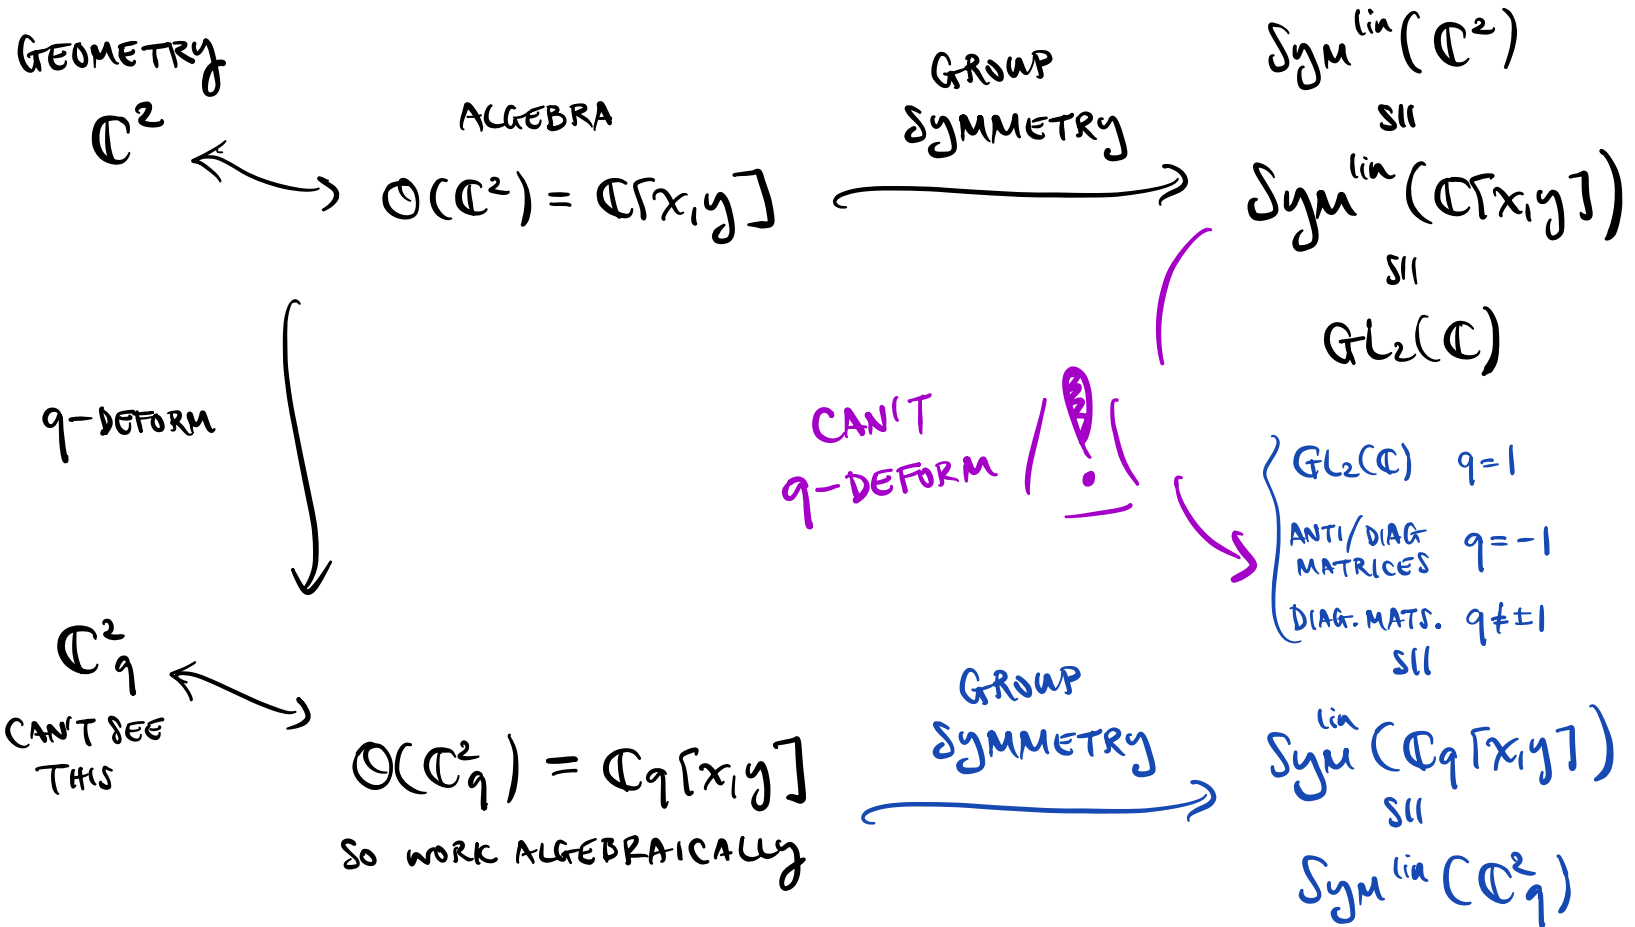 GEOMETRY
ℂ²
ALGEBRA
O(ℂ²) = ℂ[x,y]
GROUP
SYMMETRY
Sym^lin(ℂ²)
SII
Sym^lin(ℂ[x,y])
SII
GL₂(ℂ)
q-DEFORM
CAN'T
q-DEFORM
!
GL₂(ℂ) q=1
ANTI/DIAG
MATRICES q=-1
DIAG. MATS. q≠±1
SII
ℂ²_q
CAN'T SEE
THIS
O(ℂ²_q) = ℂ_q[x,y]
SO WORK ALGEBRAICALLY
GROUP
SYMMETRY
Sym^lin(ℂ_q[x,y])
SII
Sym^lin(ℂ²_q)